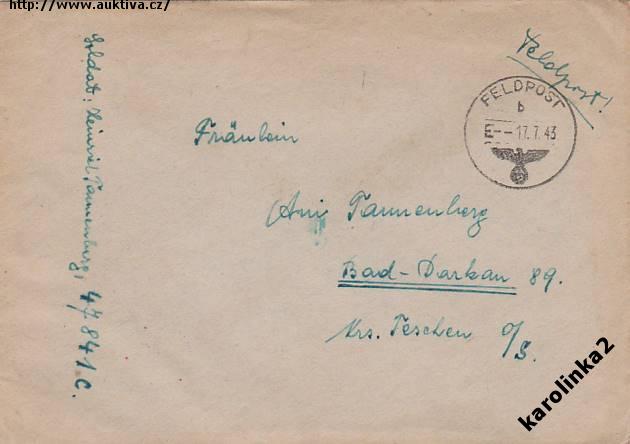 http://www.auktiva.cz/
Feldpost!
FELDPOST
b
E-- -17.7.43
Fräulein
Ani Tannenberg
Bad-Darkau 89.
Krs. Teschen O/S.
Soldat: Heinrich Tannenberg, 47841 C.
karolinka2